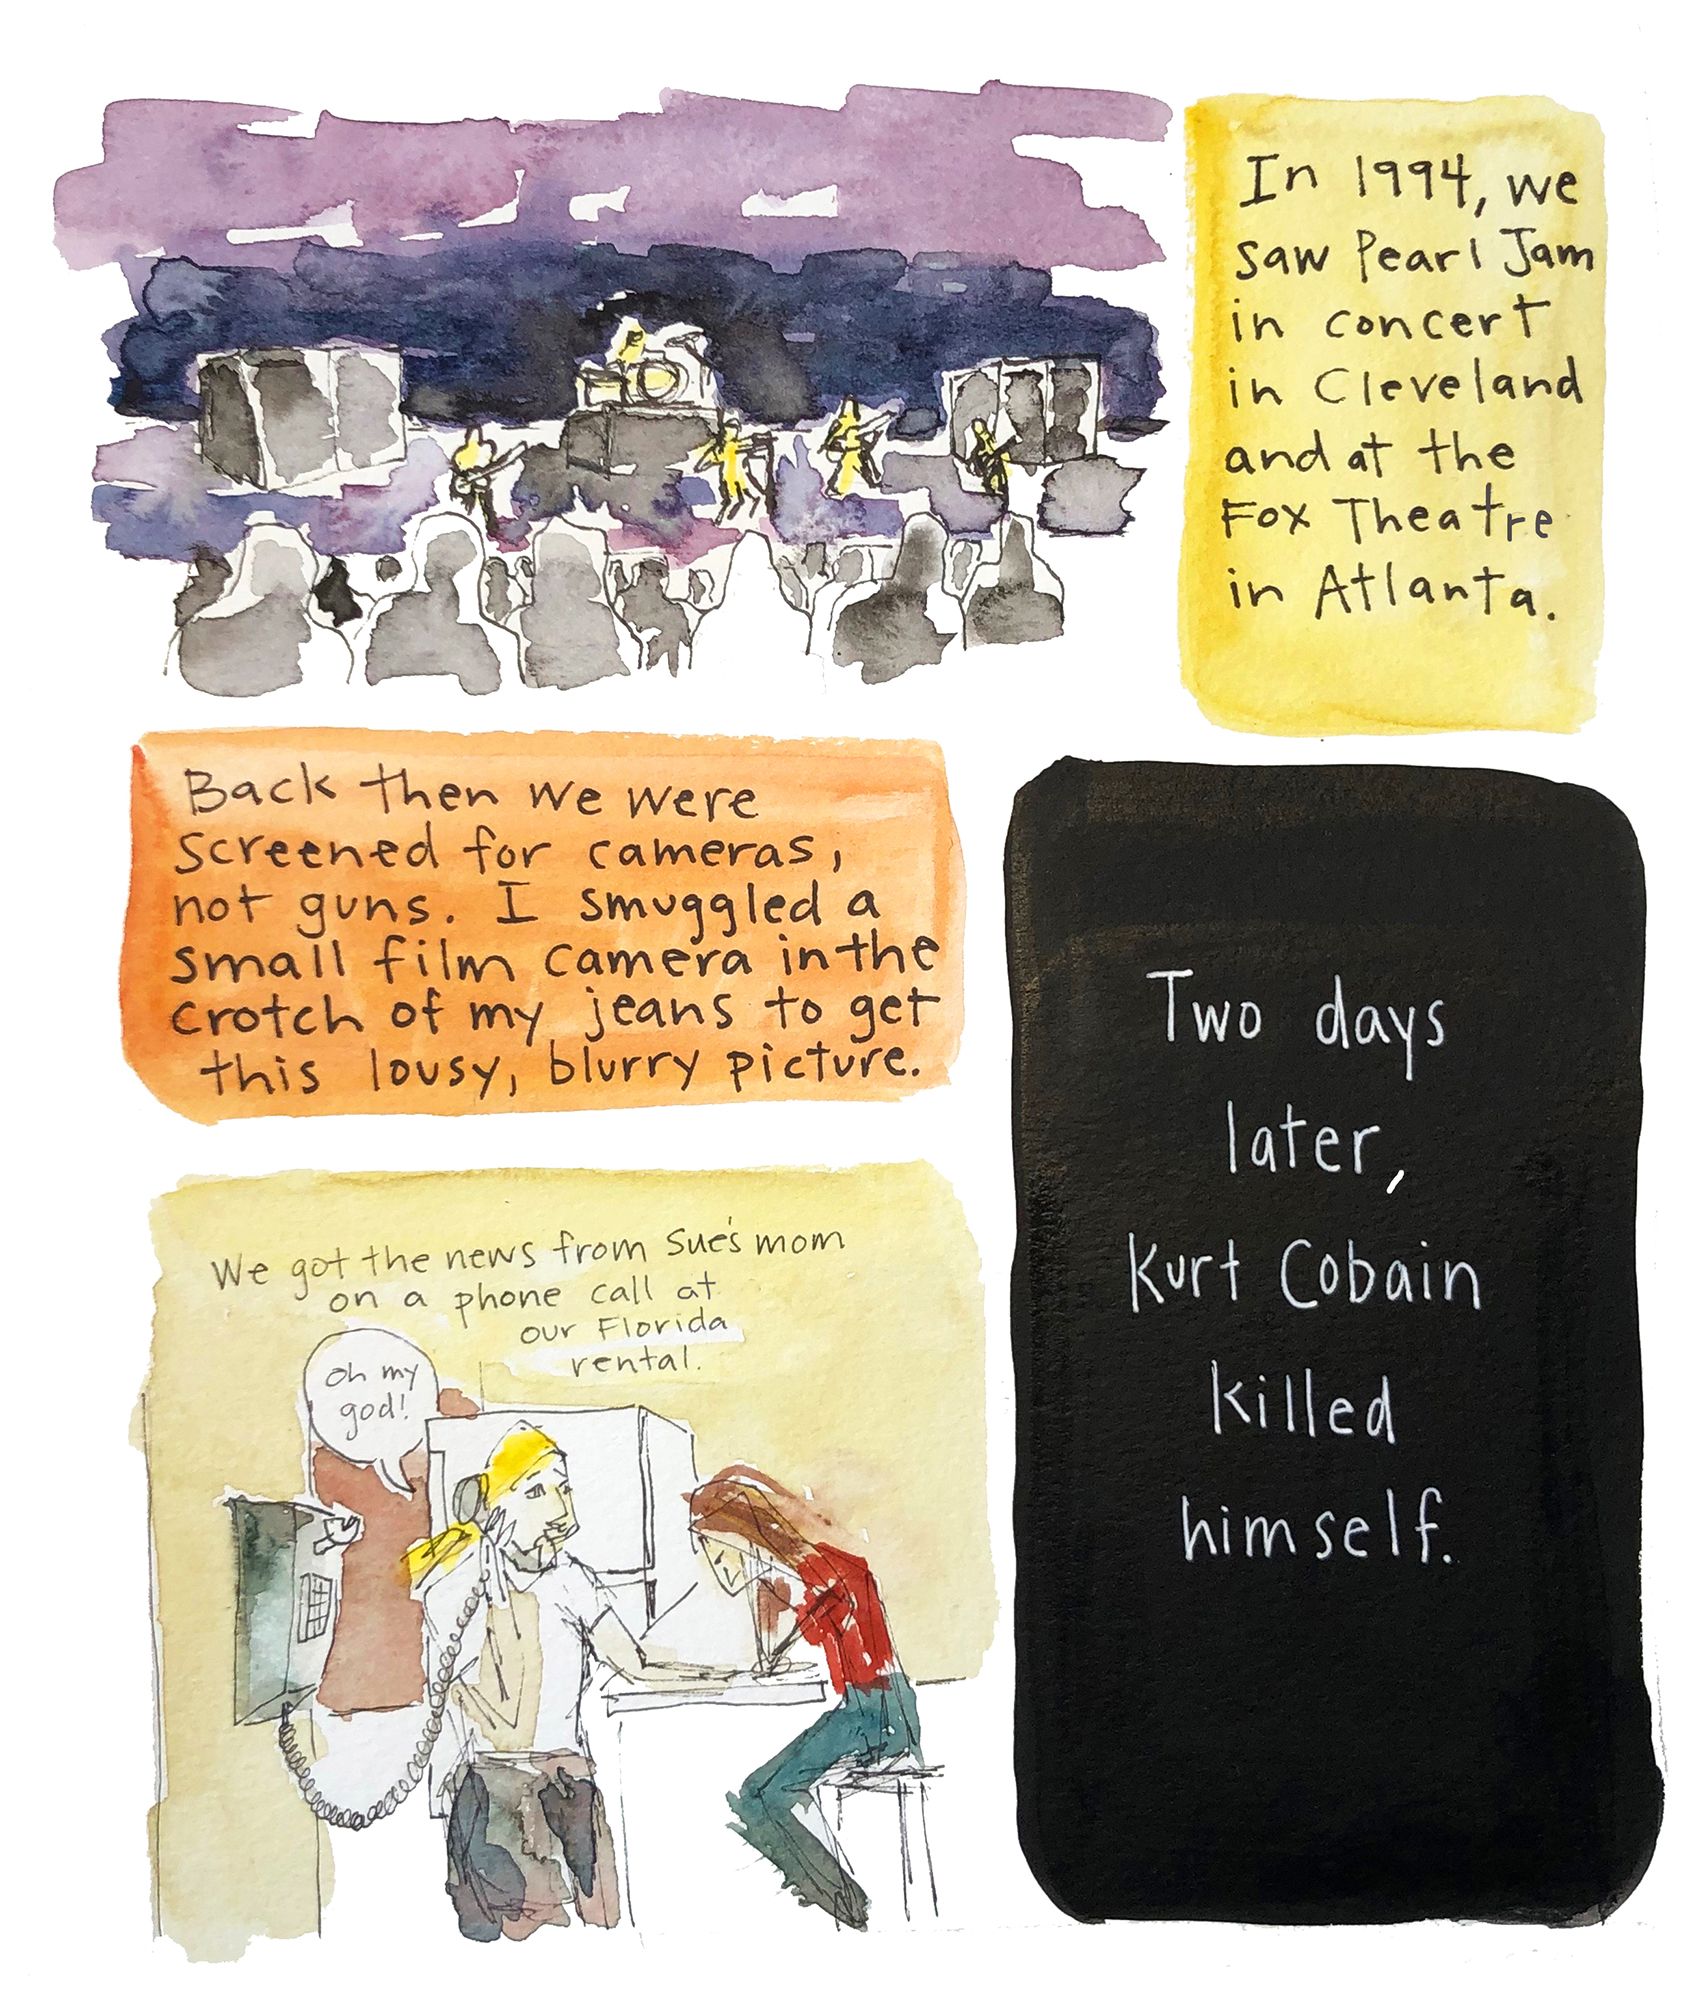 In 1994, we
saw Pearl Jam
in concert
in Cleveland
and at the
Fox Theatre
in Atlanta.
Back then we were
screened for cameras,
not guns. I smuggled a
small film camera in the
crotch of my jeans to get
this lousy, blurry picture.
Two days
later,
Kurt Cobain
killed
himself.
We got the news from Sue's mom
on a phone call at
our Florida
rental.
oh my
god!